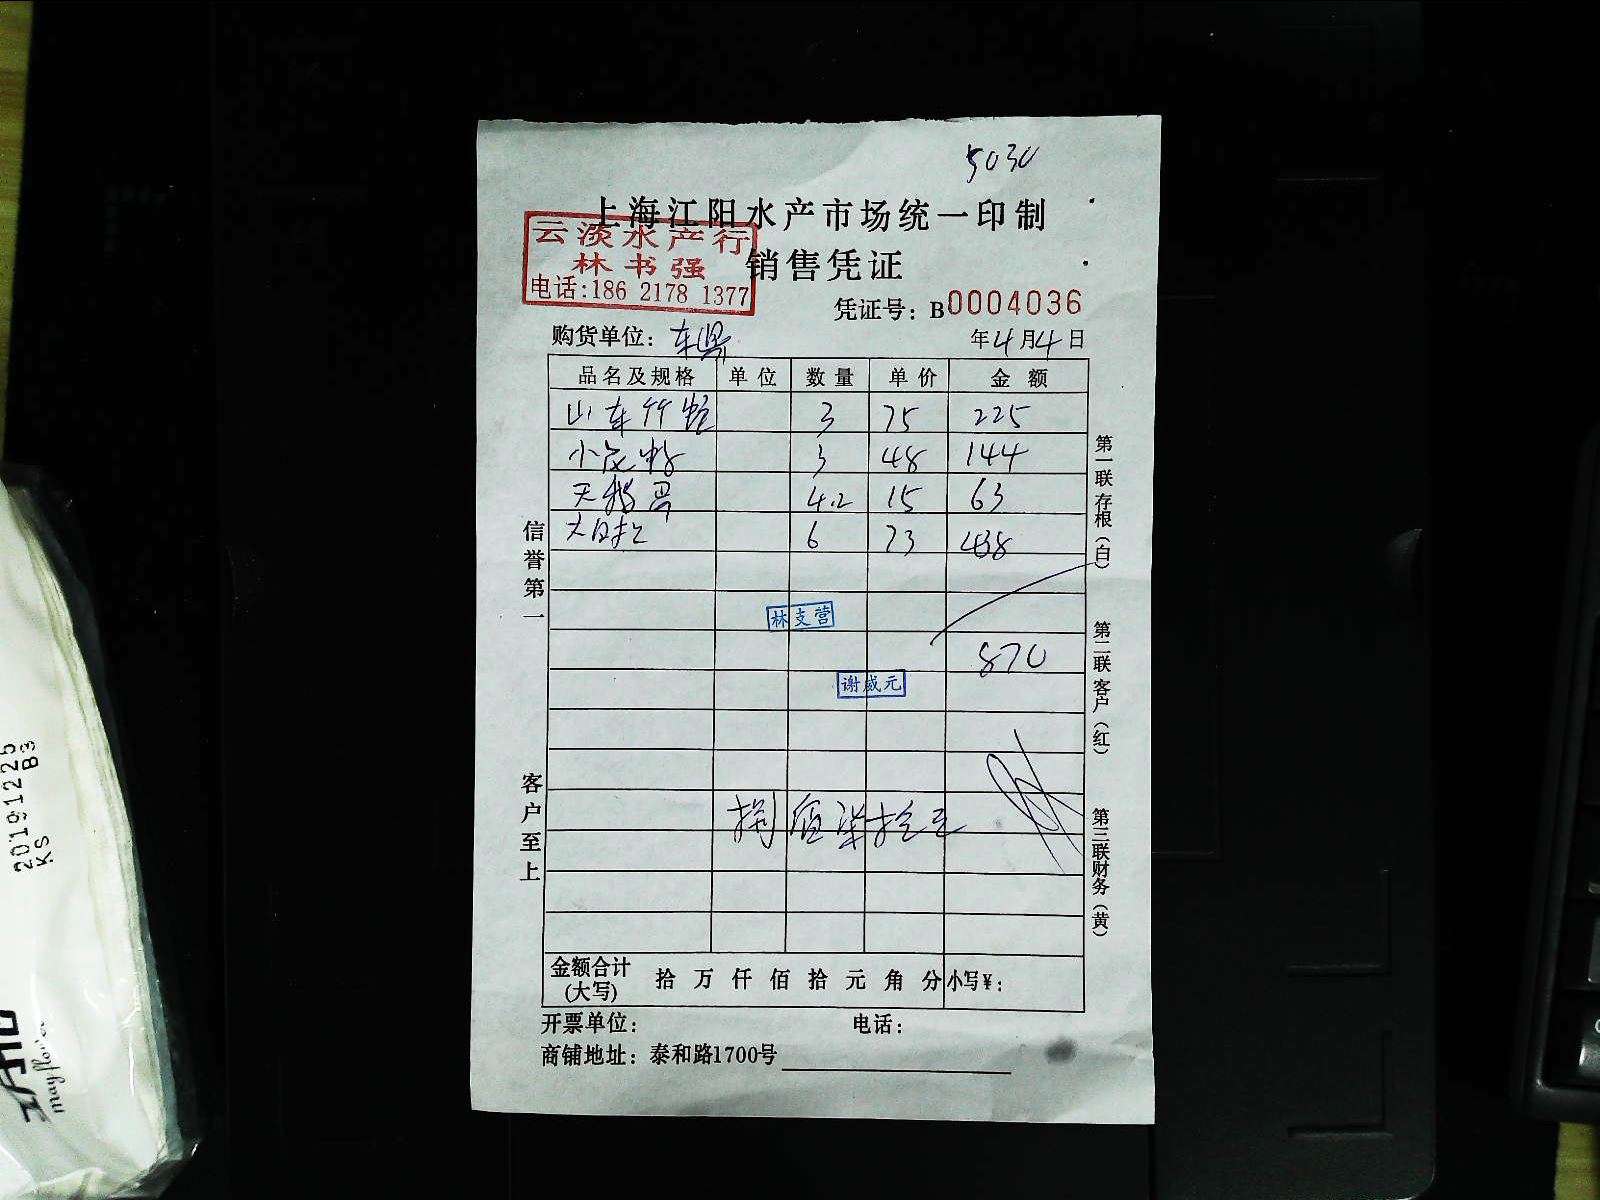 5030
上海江阳水产市场统一印制
云淡水产行
林书强
电话:186 2178 1377
销售凭证
凭证号：B0004036
购货单位：
年4月4日
品名及规格 单位 数量 单价 金额
山东竹蛏 3 75 225
小 3 48 144
天鹅 4.2 15 63
大 6 73 438
870
林支营
谢威元
捌佰柒拾元
金额合计(大写) 拾 万 仟 佰 拾 元 角 分 小写¥：
开票单位： 电话：
商铺地址：泰和路1700号
信誉第一
客户至上
第一联 存根（白）
第二联 客户（红）
第三联 财务（黄）
20191225
B3
KS
mayflower